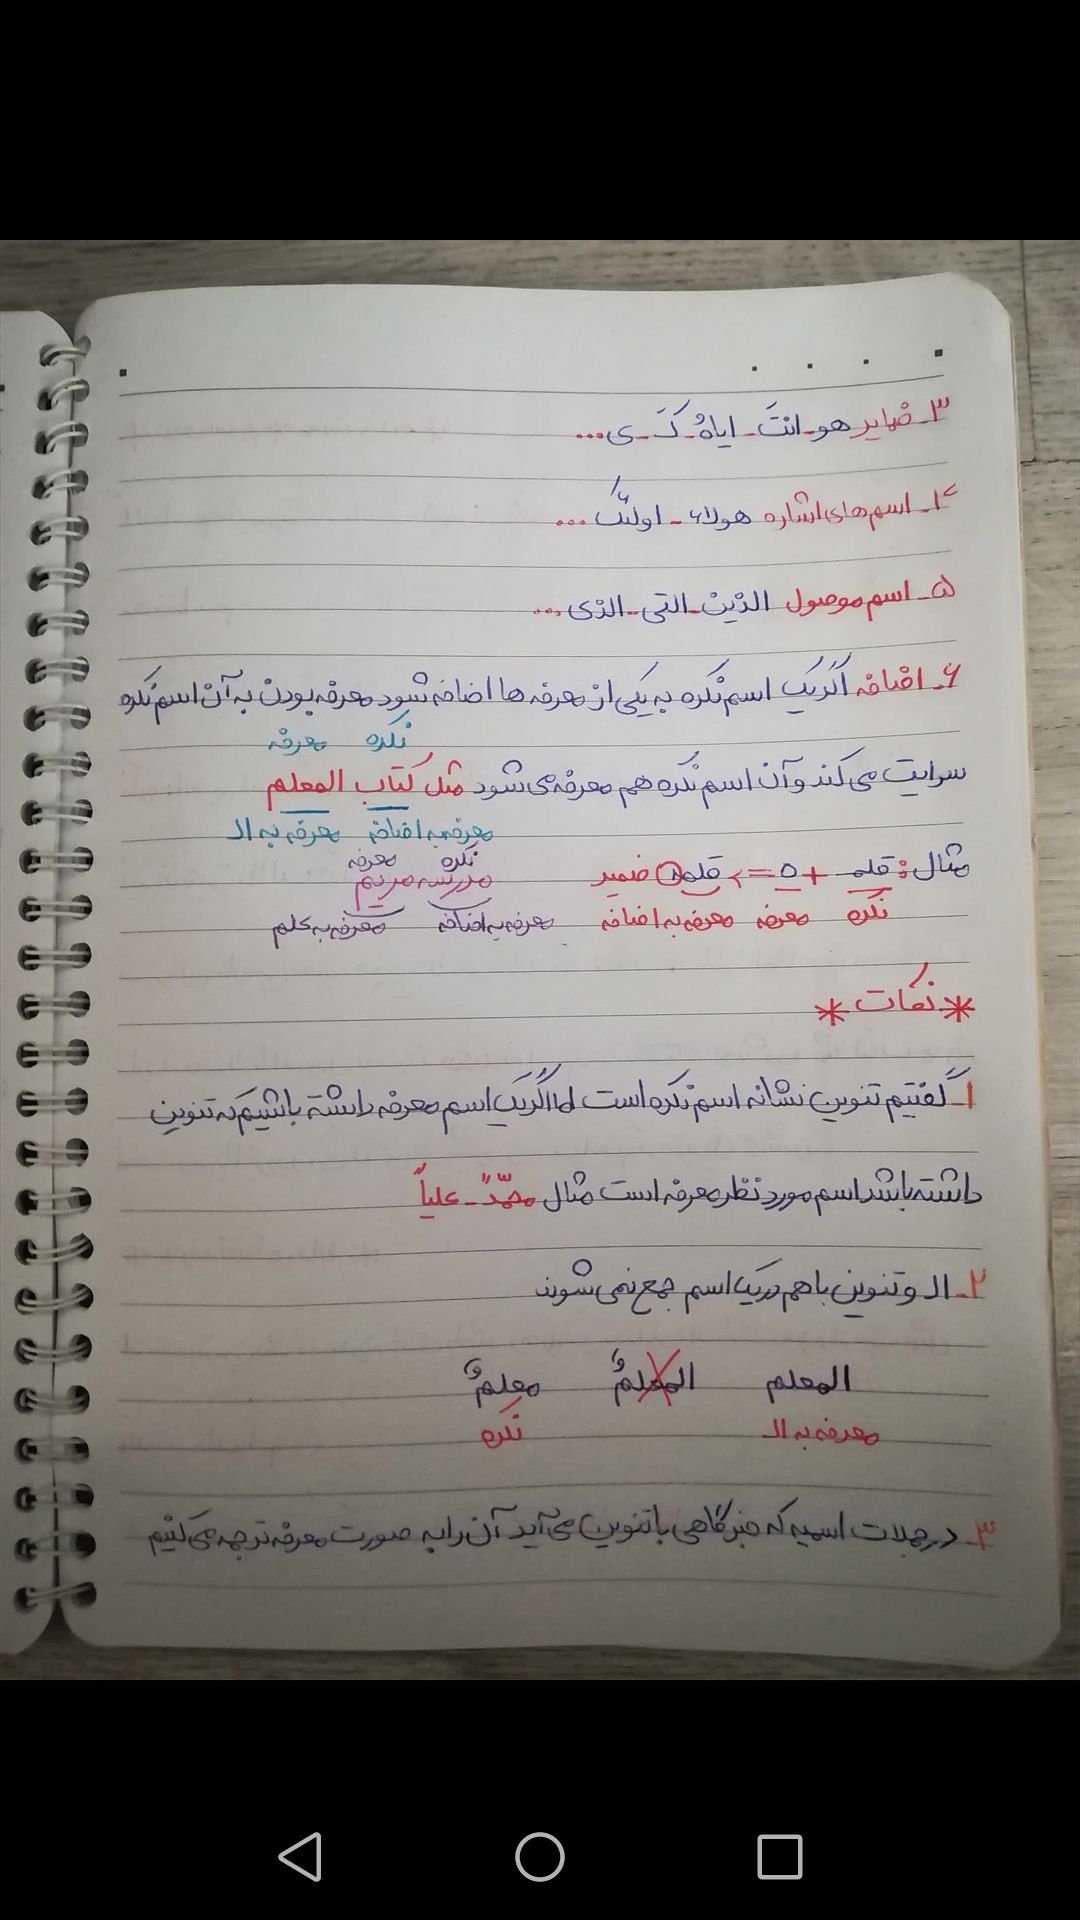 ۳- ضمایر هو - انتَ - ایاهُ - کَ - ی ...
۴- اسم های اشاره هولاء - اولئک ...
۵- اسم موصول الذین - التی - الذی ...
۶- اضافه اگر یک اسم نکره به یکی از معرفه ها اضافه شود معرفه بودن به آن اسم نکره
نکره معرفه
سرایت می کند و آن اسم نکره هم معرفه می شود مثل کتاب المعلم
معرفه به اضافه معرفه به ال
نکره معرفه
مثال: قلم + ه => قلمه ضمیر مدرسه مریم
نکره معرفه معرفه به اضافه معرفه به اضافه معرفه به علم
* نکات *
۱- گفتیم تنوین نشانه اسم نکره است اما اگر یک اسم معرفه داشته باشیم که تنوین
داشته باشد اسم مورد نظر معرفه است مثال محمّدً - علیاً
۲- ال و تنوین با هم در یک اسم جمع نمی شوند
المعلم المعلمٌ معلمٌ
معرفه به ال نکره
۳- در جملات اسمیه که خبر گاهی با تنوین می آید آن را به صورت معرفه ترجمه می کنیم